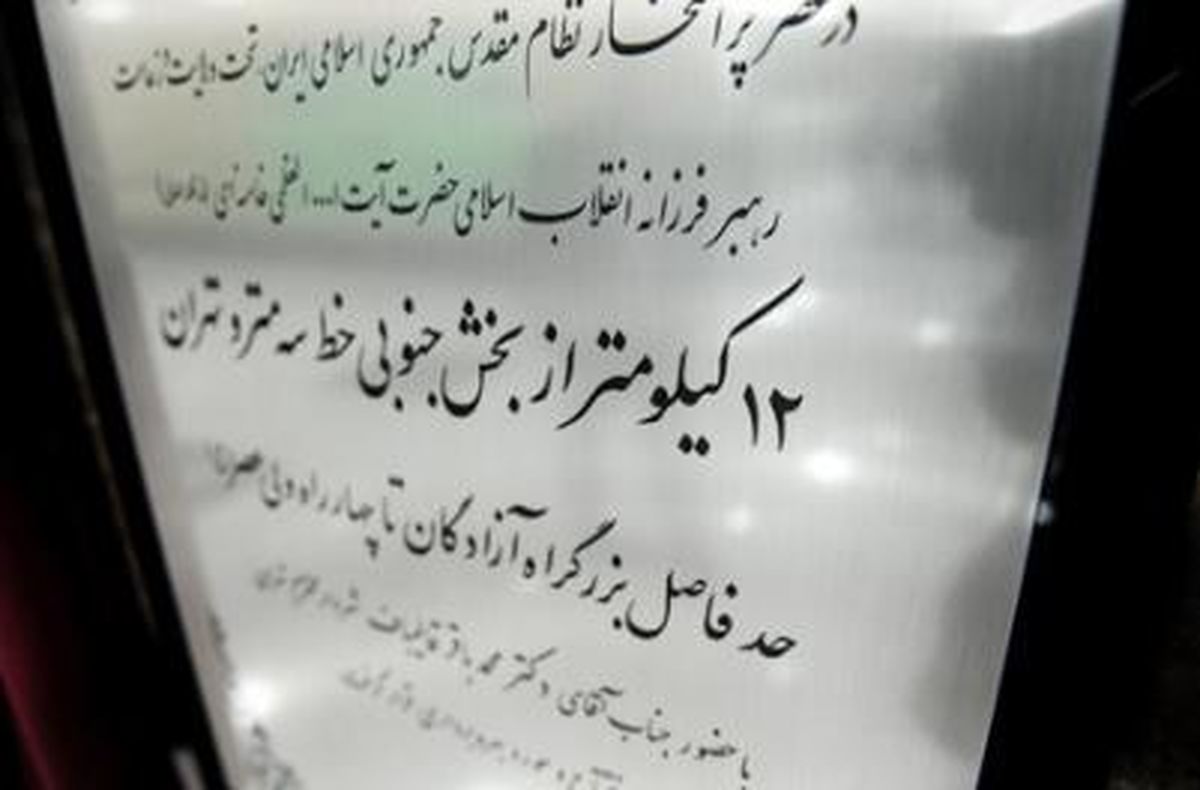 در عصر پر افتخار نظام مقدس جمهوری اسلامی ایران تحت ولایت و زعامت
رهبر فرزانه انقلاب اسلامی حضرت آیت ا... العظمی خامنه‌ای
۱۲ کیلومتر از بخش جنوبی خط سه مترو تهران
حد فاصل بزرگراه آزادگان تا چهارراه ولی عصر
با حضور جناب آقای دکتر محمد باقر قالیباف شهردار محترم تهران